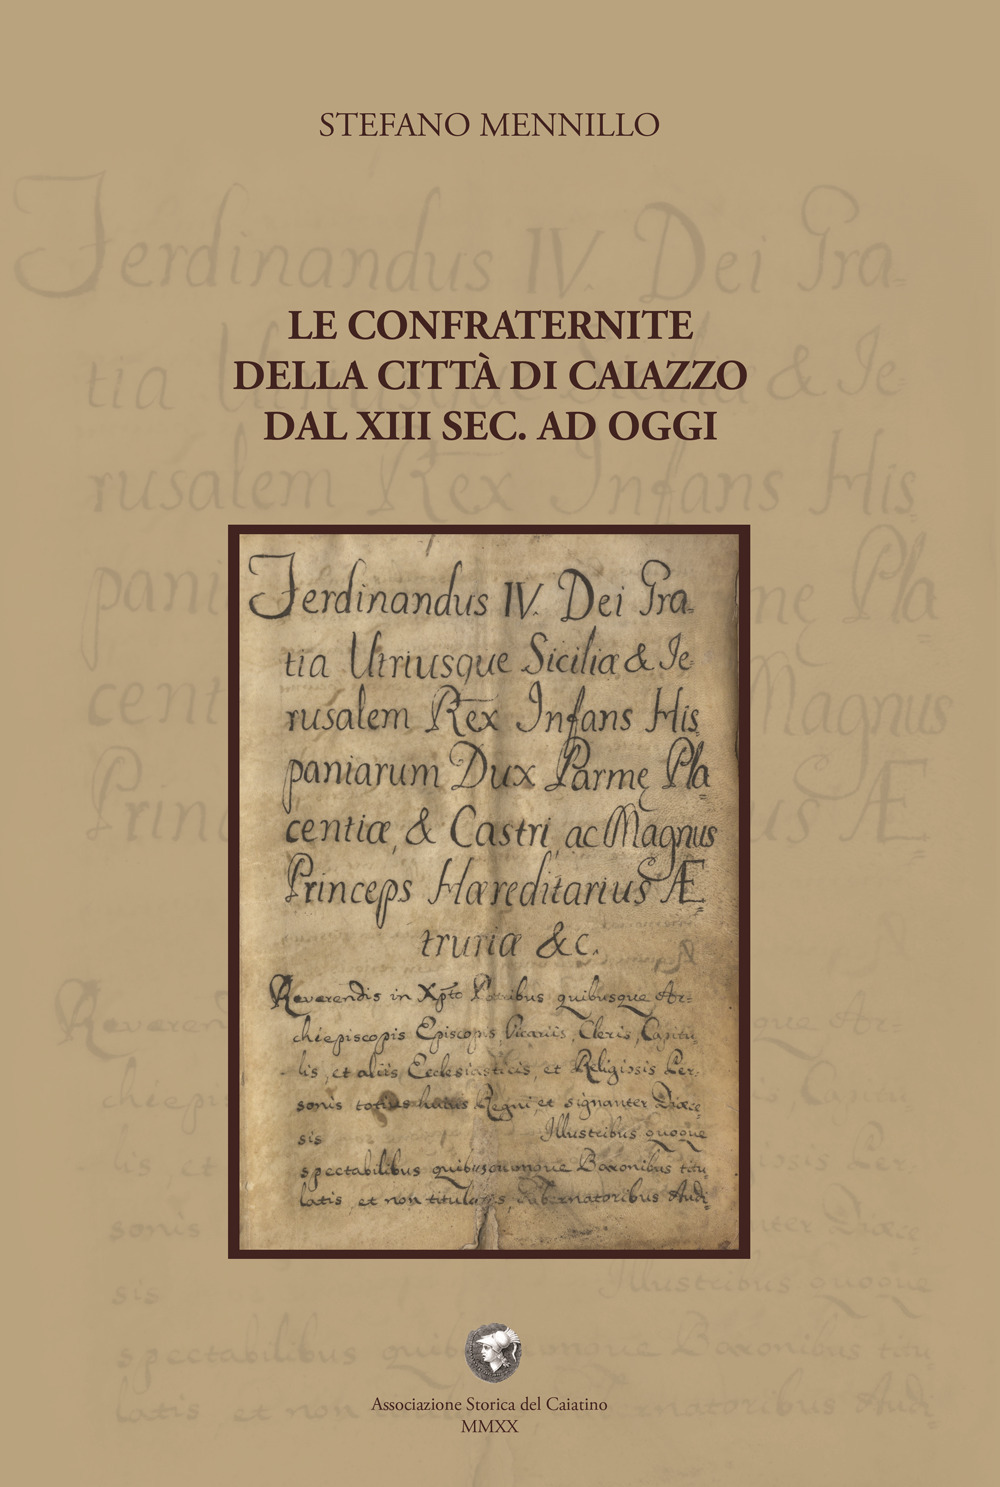 STEFANO MENNILLO
LE CONFRATERNITE
DELLA CITTÀ DI CAIAZZO
DAL XIII SEC. AD OGGI
Ferdinandus IV. Dei Gra=
tia Utriusque Siciliæ & Ie=
rusalem Rex Infans His
paniarum Dux Parmę Pla=
centiæ, & Castri, ac Magnus
Princeps Hæreditarius Æ=
truriæ &c.
Reverendis in Xpto Patribus quibusque Ar=
chiepiscopis Episcopis, Vicariis, Cleris, Capitu=
lis, et aliis Ecclesiasticis, et Religiosis Per=
sonis totius huius Regni, et signanter Diœcę
sis Illustribus quoque
spectabilibus quibuscumque Baronibus titu
latis, et non titulatis, Gubernatoribus Audi=
Associazione Storica del Caiatino
MMXX